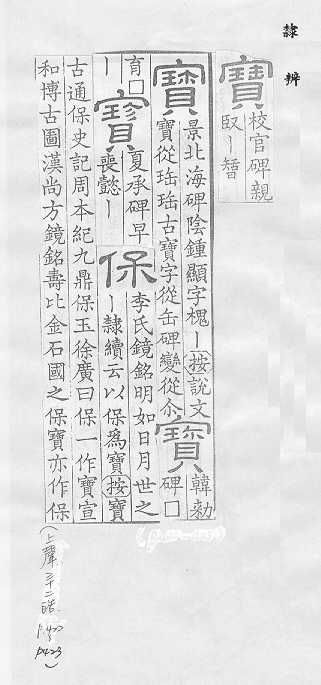 隸辨
寶 校官碑親
臤丨智
景北海碑陰鍾顯字槐丨按說文
寶 寶從珤珤古寶字從缶碑變從尒 寶 韓勑
碑□
育□
丨 寶 夏承碑早
喪懿丨 保 李氏鏡銘明如日月世之
丨隸續云以保爲寶按寶
古通保史記周本紀九鼎保玉徐廣曰保一作寶宣
和博古圖漢尚方鏡銘壽比金石國之保寶亦作保
(上聲 三十二皓 P.422 P423)